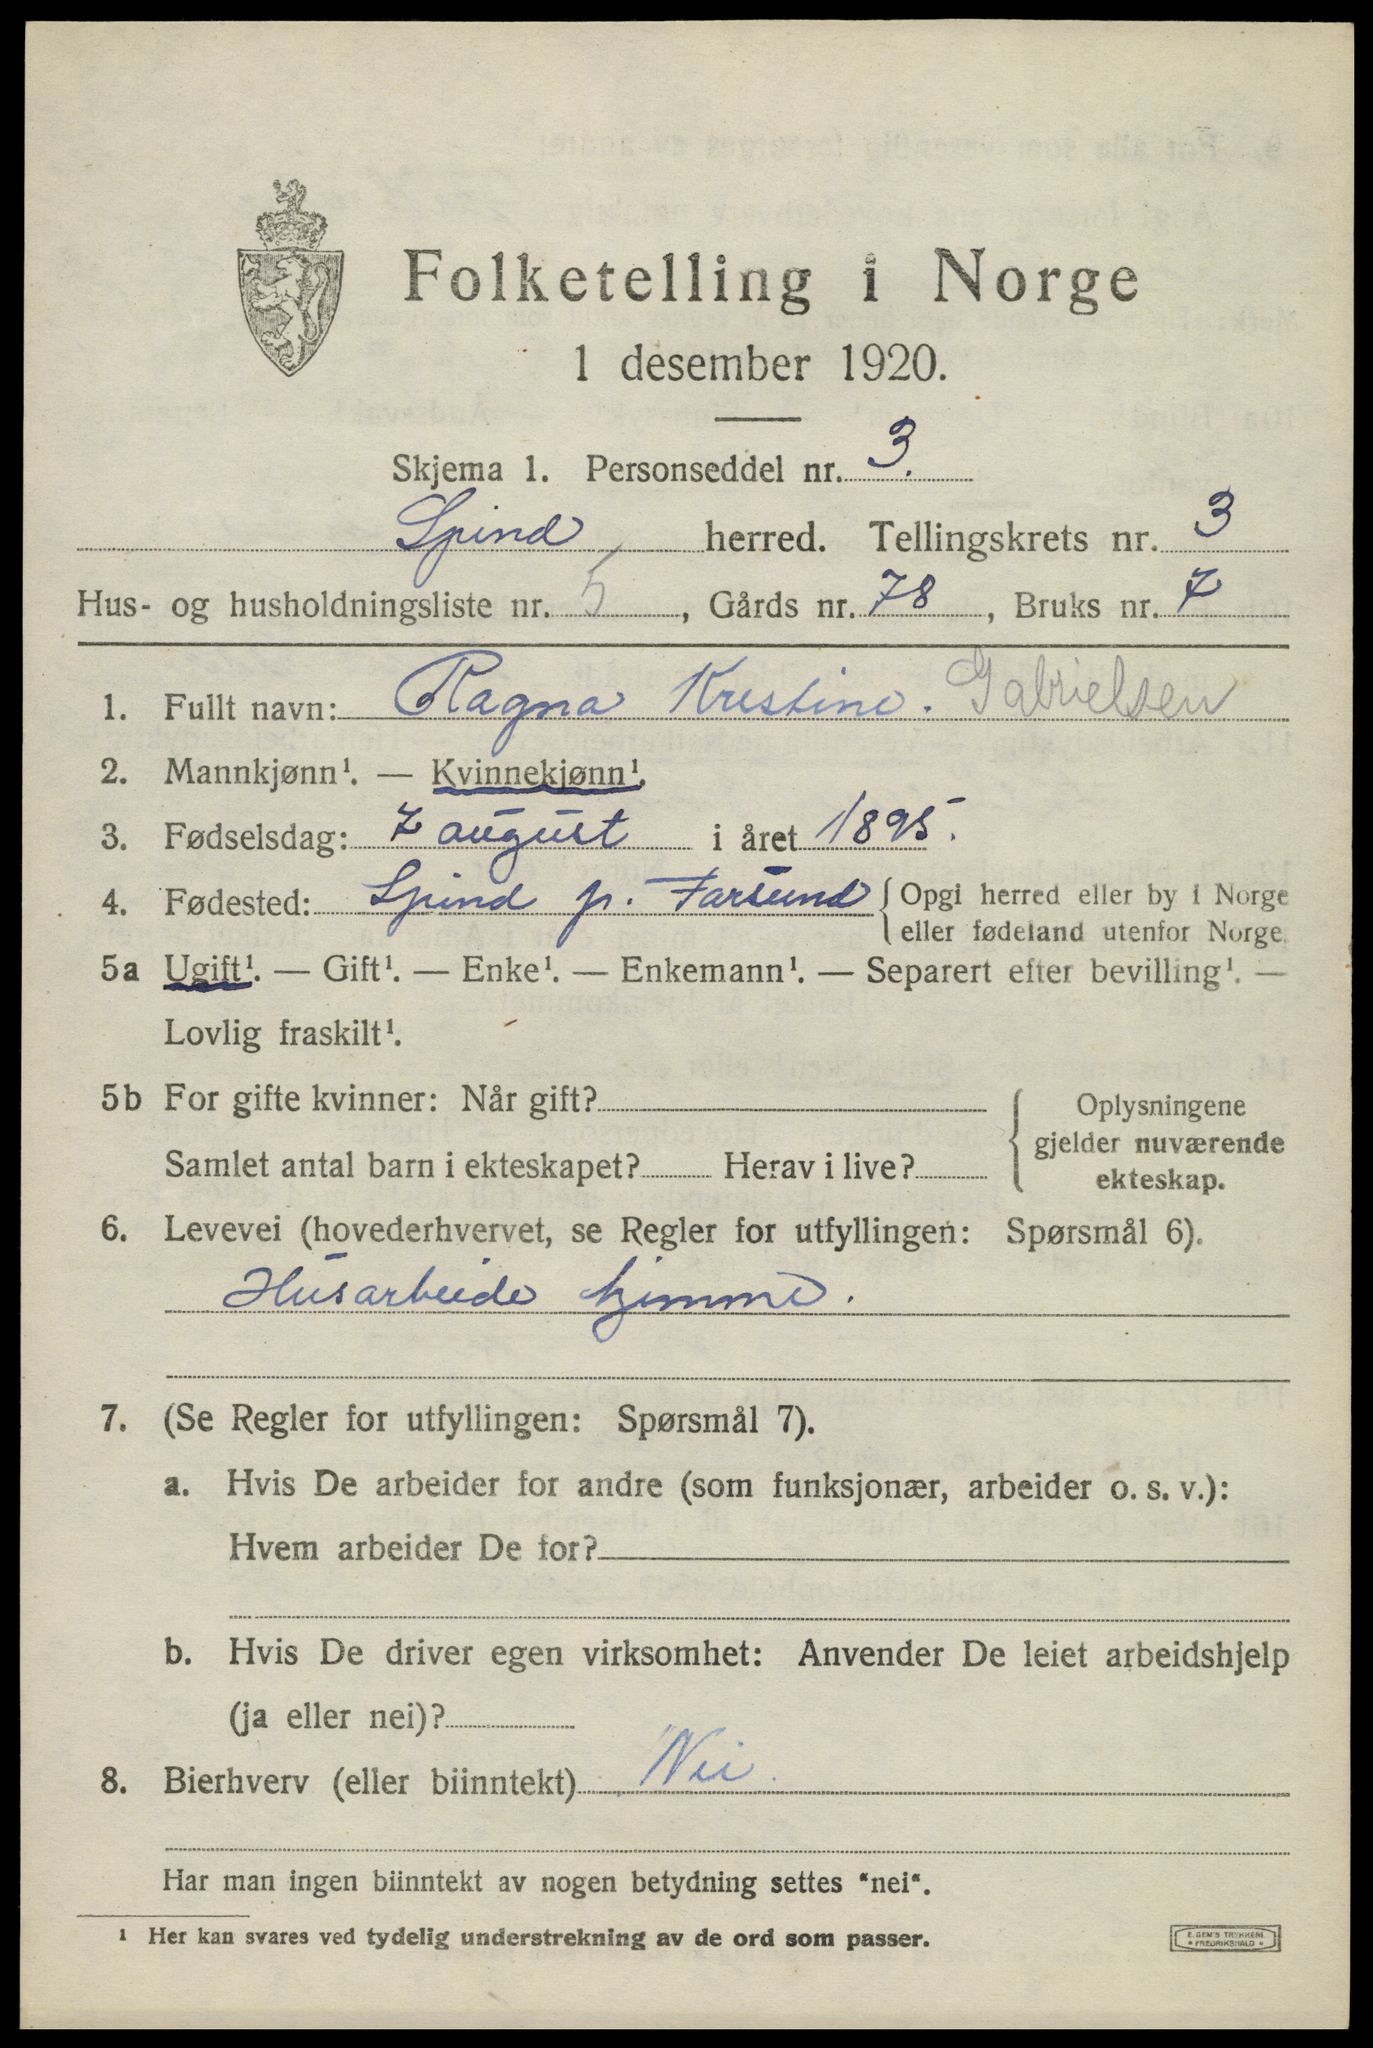 Folketelling i Norge
1 desember 1920.
Skjema 1. Personseddel nr. 3.
Spind herred. Tellingskrets nr. 3
Hus- og husholdningsliste nr. 5, Gårds nr. 78, Bruks nr. 7
1. Fullt navn: Ragna Kristine. Gabrielsen
2. Mannkjønn¹. — Kvinnekjønn¹.
3. Fødselsdag: 7 august i året 1895.
4. Fødested: Spind p. Farsund { Opgi herred eller by i Norge
eller fødeland utenfor Norge.
5a Ugift¹. — Gift¹. — Enke¹. — Enkemann¹. — Separert efter bevilling¹. —
Lovlig fraskilt¹.
5b For gifte kvinner: Når gift?
Samlet antal barn i ekteskapet? Herav i live?
{ Oplysningene
gjelder nuværende
ekteskap.
6. Levevei (hovederhvervet, se Regler for utfyllingen: Spørsmål 6).
Husarbeide hjemme.
7. (Se Regler for utfyllingen: Spørsmål 7).
a. Hvis De arbeider for andre (som funksjonær, arbeider o. s. v.):
Hvem arbeider De for?
b. Hvis De driver egen virksomhet: Anvender De leiet arbeidshjelp
(ja eller nei)?
8. Bierhverv (eller biinntekt) Nei.
Har man ingen biinntekt av nogen betydning settes "nei".
¹ Her kan svares ved tydelig understrekning av de ord som passer.
E. SEM'S TRYKKERI
• FREDRIKSHALD •